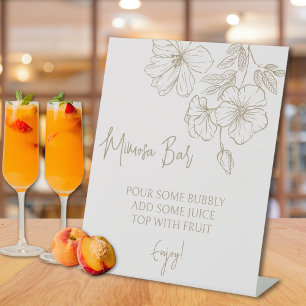 Mimosa Bar
POUR SOME BUBBLY
ADD SOME JUICE
TOP WITH FRUIT
Enjoy!